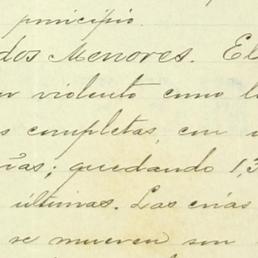 principio.
dos Menores. El
violento como l
s completas, con
ías; quedando 1,3
últimas. Las crías
se mueven son